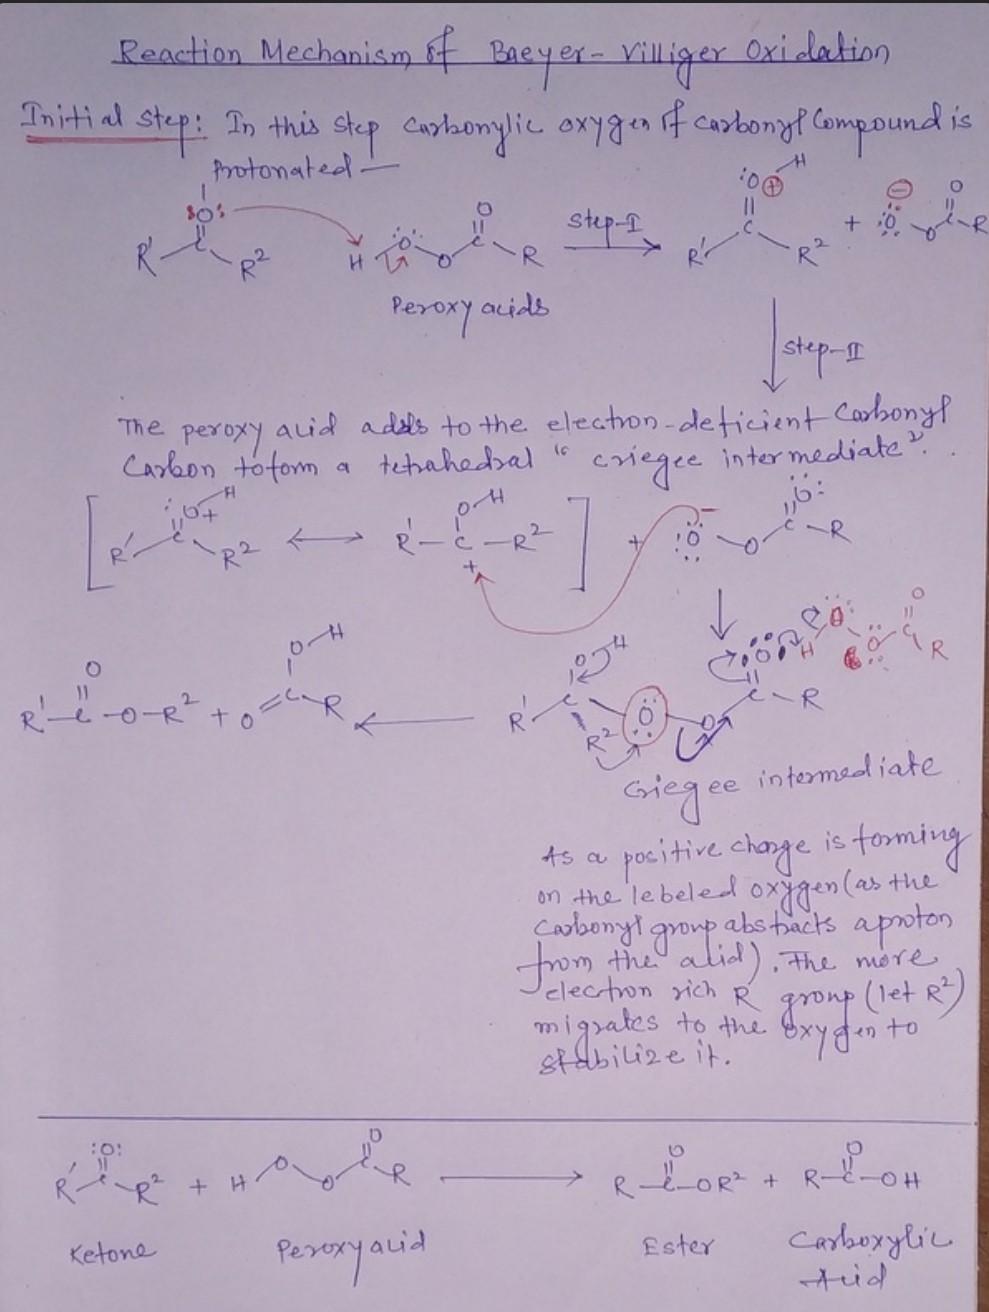 Reaction Mechanism of Baeyer-Villiger Oxidation
Initial Step: In this step carbonylic oxygen of carbonyl compound is
protonated —
:O: H :O⊕ H ⊖ O
R' C R² H O O C R Step-I R' C R² + :O: O C R
Peroxy acids
Step-II
The peroxy acid adds to the electron-deficient Carbonyl
Carbon to form a tetrahedral "criegee intermediate".
[ R' C R² :O+ H ↔ R' — C — R² O H + ] + :O: - O C R :O:
R' — C — O — R² O + O = C R O H ← R' C R² O H O O C R :O: H O O C R O
Criegee intermediate
As a positive charge is forming
on the lebeled oxygen (as the
Carbonyl group abstracts a proton
from the acid). The more
electron rich R group (let R²)
migrates to the oxygen to
stabilize it.
R' C R² :O: + H O O C R O → R — C — OR² O + R — C — OH O
Ketone Peroxyacid Ester Carboxylic
Acid